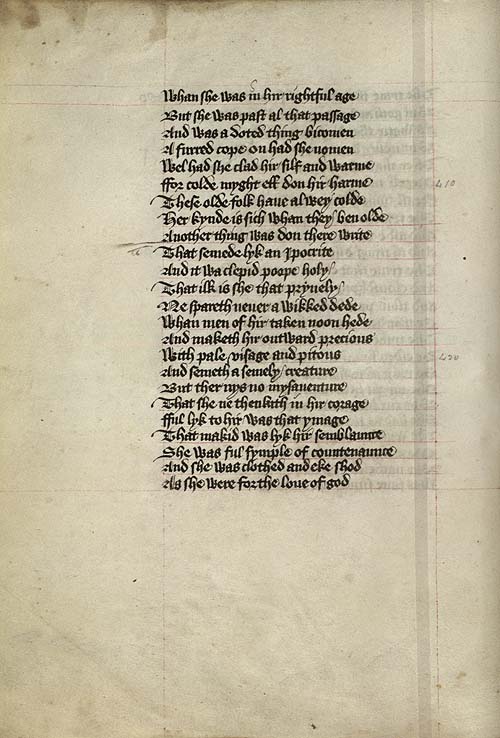 Whan she was in hir rightful age
But she was past al that passage
And was a doted thing bicomen
A furred cope on had she nomen
Wel had she clad hir silf and warme
ffor colde myght ell don hir harme 410
These olde folk haue alwey colde
Her kynde is sich whan they ben olde
Another thing was don there write
That semede lyk an Ipocrite
And it wa clepid poope holy
That ilk is she that pryuely
Ne spareth neuer a wikked dede
Whan men of hir taken noon hede
And maketh hir outward precious
With pale visage and pitous 420
And semeth a semely creature
But ther nys no mysauenture
That she ne thenkith in hir corage
fful lyk to hir was that ymage
That makid was lyk hir semblaunce
She was ful symple of countenaunce
And she was clothed and eke shod
As she were for the loue of god